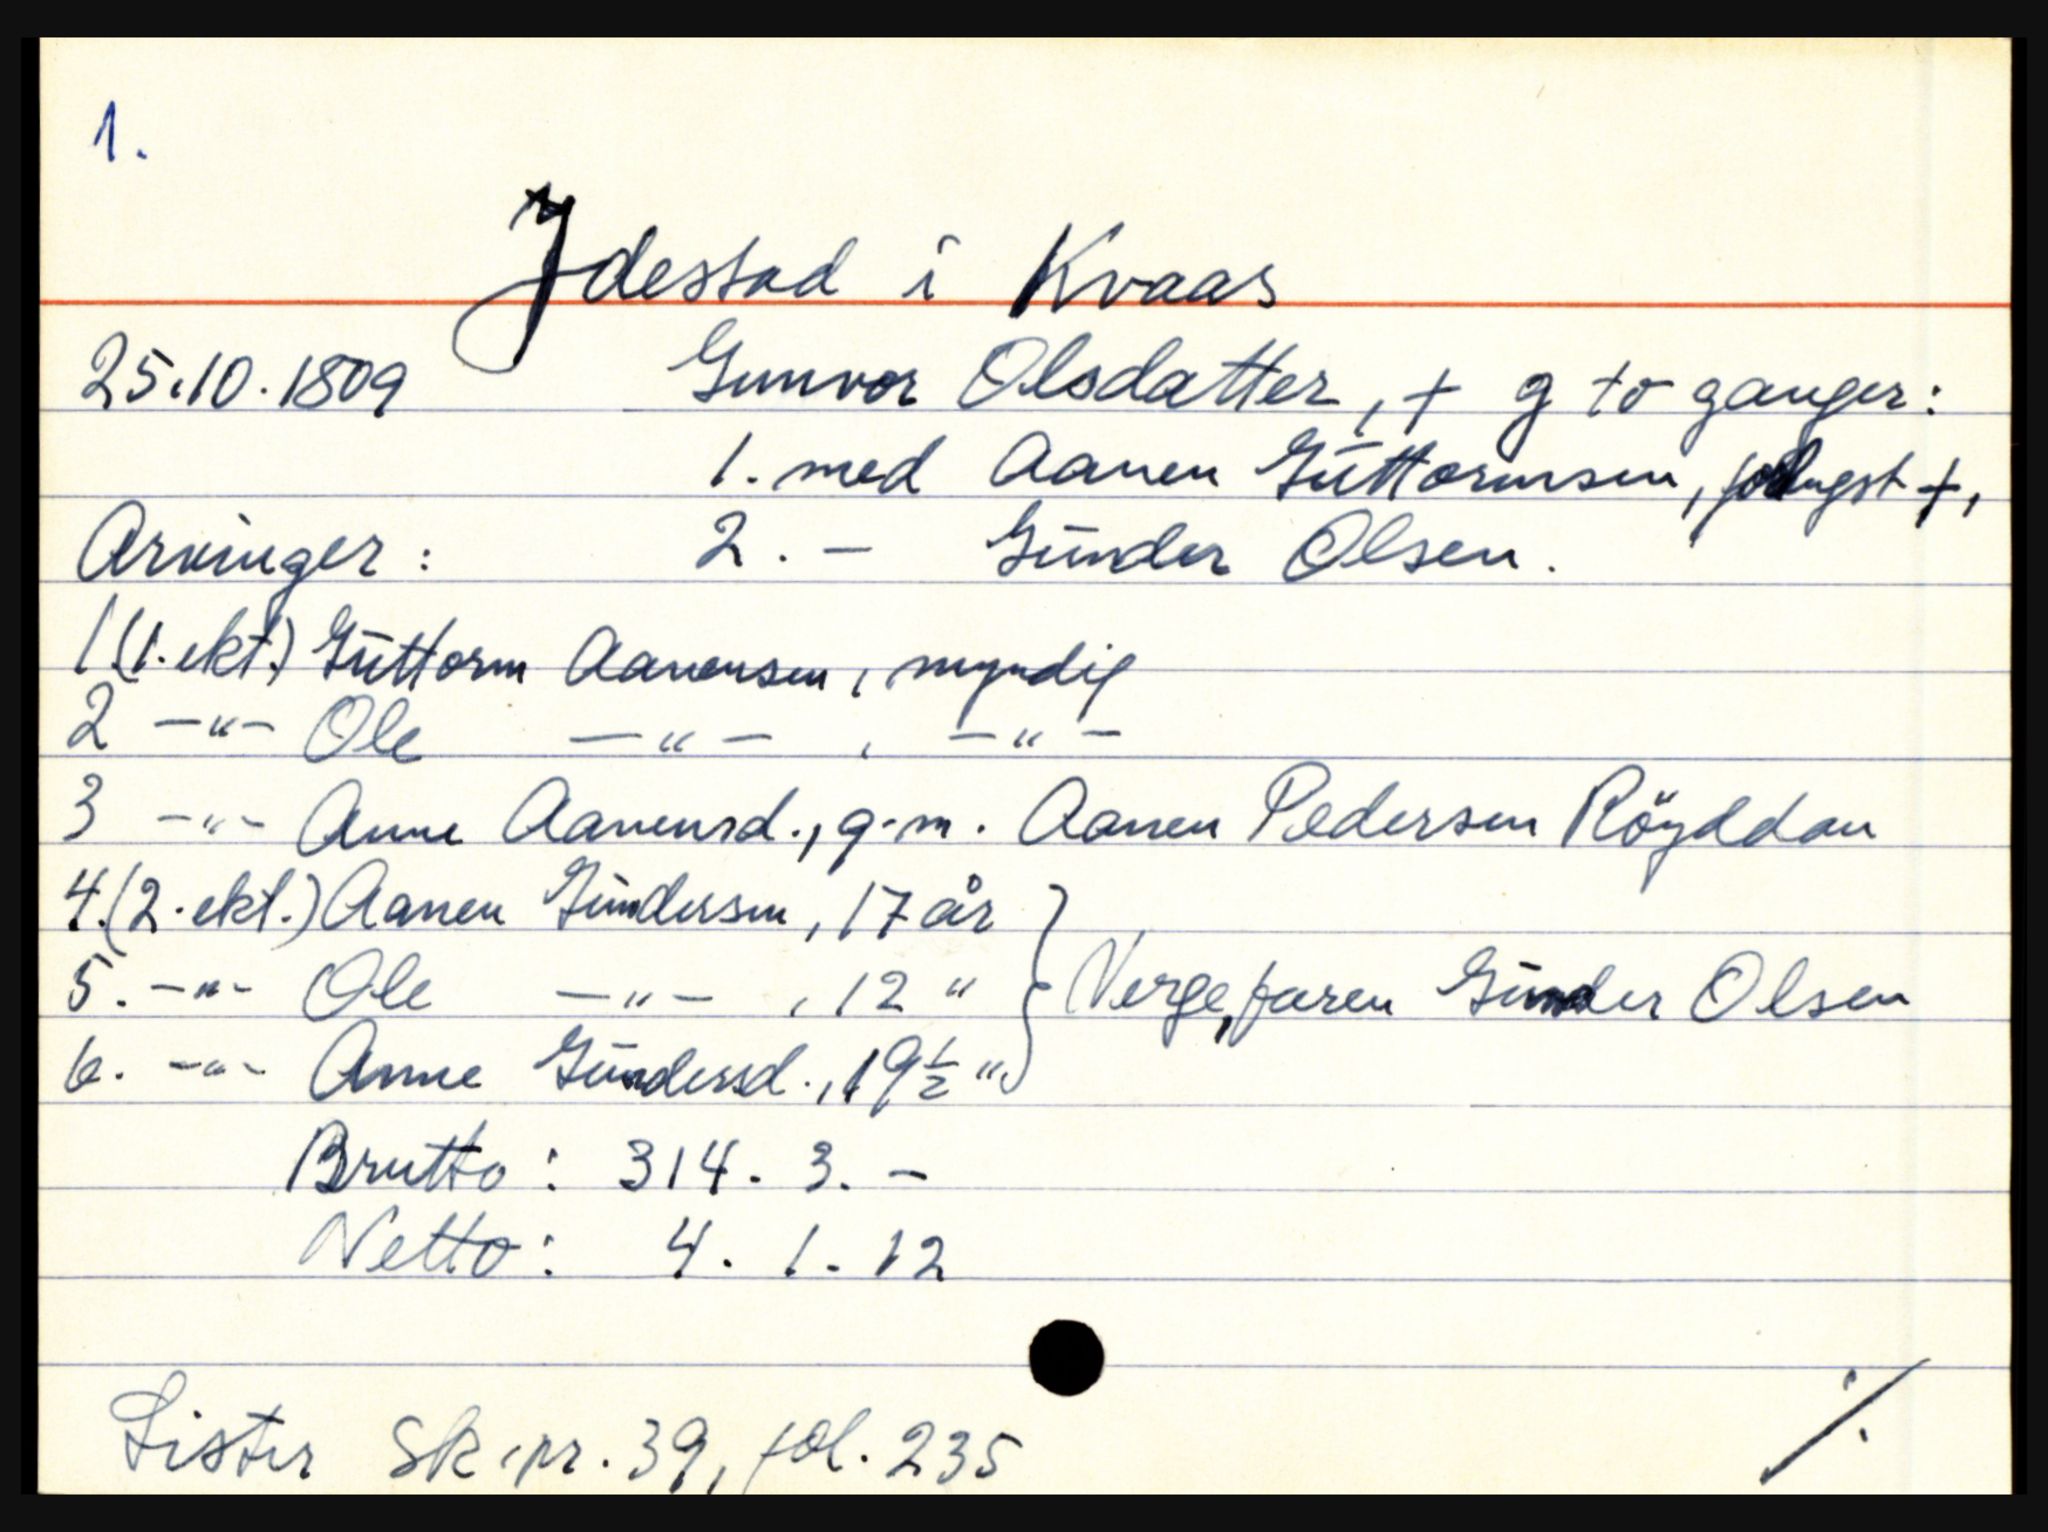 1.
Idestad i Kvaas
25.10.1809 Gunvor Olsdatter, + g to ganger:
1. med Aanen Guttormsen, forlengst +,
Arvinger: 2. — Gunder Olsen.
1.(1. ekt.) Guttorm Aanensen, myndig
2 —"— Ole —"— , —"—
3 —"— Anne Aanensd., g.m. Aanen Pedersen Röyddan
4.(2. ekt.) Aanen Gundersen, 17 år
5. —"— Ole —"— , 12 " } Verge, faren Gunder Olsen
6. —"— Anne Gundersd., 19½ "
Brutto: 314. 3. —
Netto: 4. 1. 12
Lister sk.pr. 39, fol. 235
./.